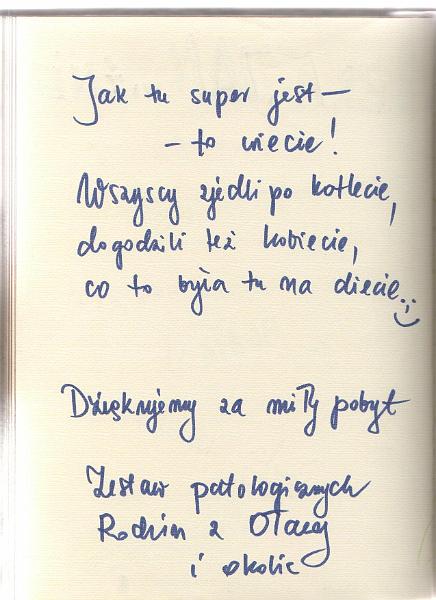 Jak tu super jest —
– to wiecie!
Wszyscy zjedli po kotlecie,
dogodzili też kobiecie,
co to była tu na diecie..
Dziękujemy za miły pobyt
Zestaw patologicznych
Rodzin z
i okolic